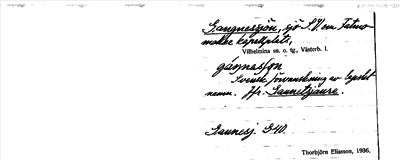 Gangnessjön, sjö S.V. om Fatmo-
makke kapellplats,
Vilhelmina sn. o. tg., Västerb. l.
gágnasjon
Svensk förvanskning av lapskt
namn. Jfr. Gannetjaure.
Gaunesj. G40.
Thorbjörn Eliasson, 1936.